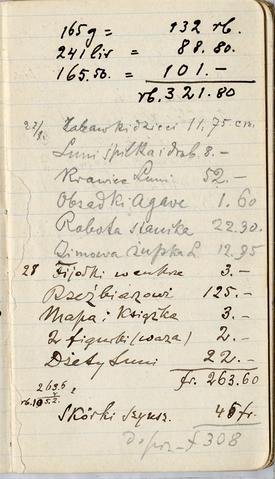 165 g = 132 rb.
241 lir = 88.80.
165.50. = 101.–
rb. 321.80
27/ Zabawki dzieci 11,75 cm.
Luni szpilka i drob. 8.–
Krawiec Luni 52.–
Obsadki Agave 1.60
Robota stanika 22.30.
Zimowa 12.95
28 Fijołki w cukrze 3.–
Rzeźbiarzowi 125.–
Mapa i Książka 3.–
2 figurki (waza) 2.–
Dżety Luni 22.–
fr. 263.60
263.6
Skórki 45 fr.
308